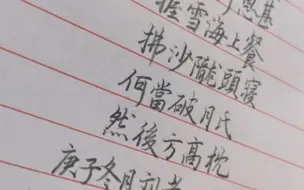 恩甚
握雪海上餐
拂沙隴頭寢
何當破月氏
然後方高枕
庚子冬月初